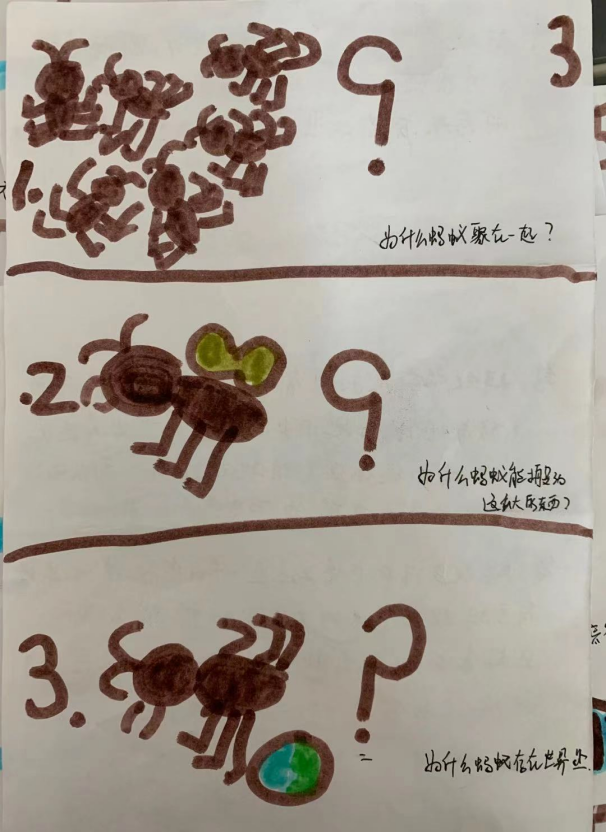 3
1.
?
为什么蚂蚁聚在一起?
2.
?
为什么蚂蚁能
这么大的东西?
3.
?
为什么蚂蚁存在世界上